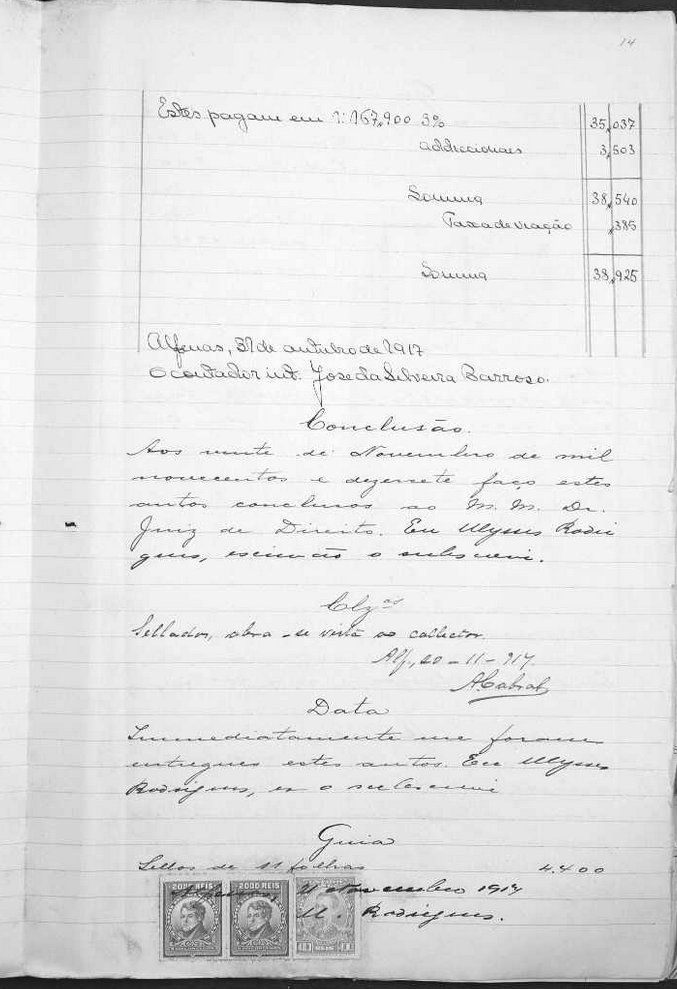 14
Estes pagam em 1:167,900 3% 35,037
addiccionaes 3,503
Somma 38,540
Taxa de viação ,385
Somma 38,925
Alfenas, 31 de outubro de 1917
O contador int. Jose da Silveira Barroso.
Conclusão.
Aos vinte de Novembro de mil
novecentos e dezesete faço estes
autos conclusos ao M. M. Dr.
Juiz de Direito. Eu Ulysses Rodri
gues, escrivão o subscrevi.
Clzos
Sellados, abra-se vista ao collector.
Alf., 20-11-917.
ACabral
Data
Immediatamente me foram
entregues estes autos. Eu Ulysses
Rodrigues, es o subscrevi
Guia
Sellos de 11 folhas 4.400
Alfenas, 21 Novembro 1917
U. Rodrigues.
2000 REIS 2000 REIS